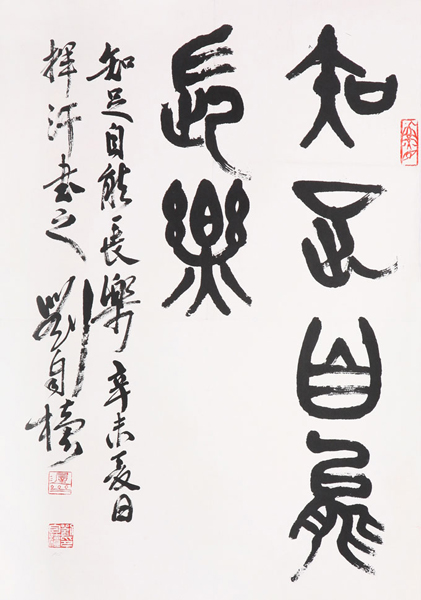 知足自能
長樂
知足自能長樂辛未夏日
揮汗書之劉自櫝